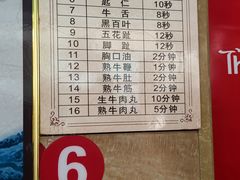 6 匙仁 10秒
7 牛舌 8秒
8 黑百叶 8秒
9 五花趾 12秒
10 脚趾 12秒
11 胸口油 2分钟
12 熟牛鞭 1分钟
13 熟牛肚 2分钟
14 熟牛筋 2分钟
15 生牛肉丸 10分钟
16 熟牛肉丸 5分钟
6